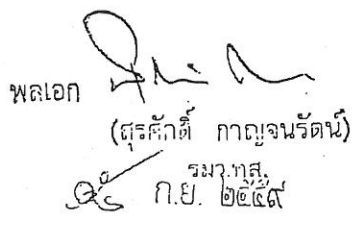 พลเอก
(สุรศักดิ์ กาญจนรัตน์)
รมว.ทส.
ก.ย. ๒๕๕๙